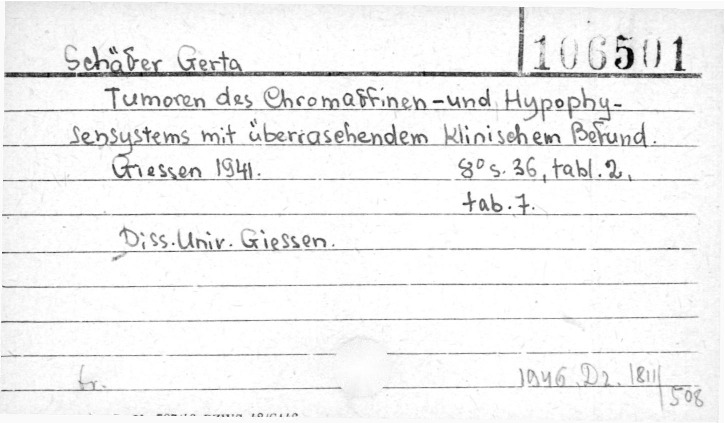 Schäfer Gerta
106501
Tumoren des Chromaffinen-und Hypophy-
sensystems mit überraschendem klinischem Befund.
Giessen 1941. 8° s. 36, tabl. 2,
tab. 7.
Diss. Univ. Giessen.
1946. Dz. 1811/508